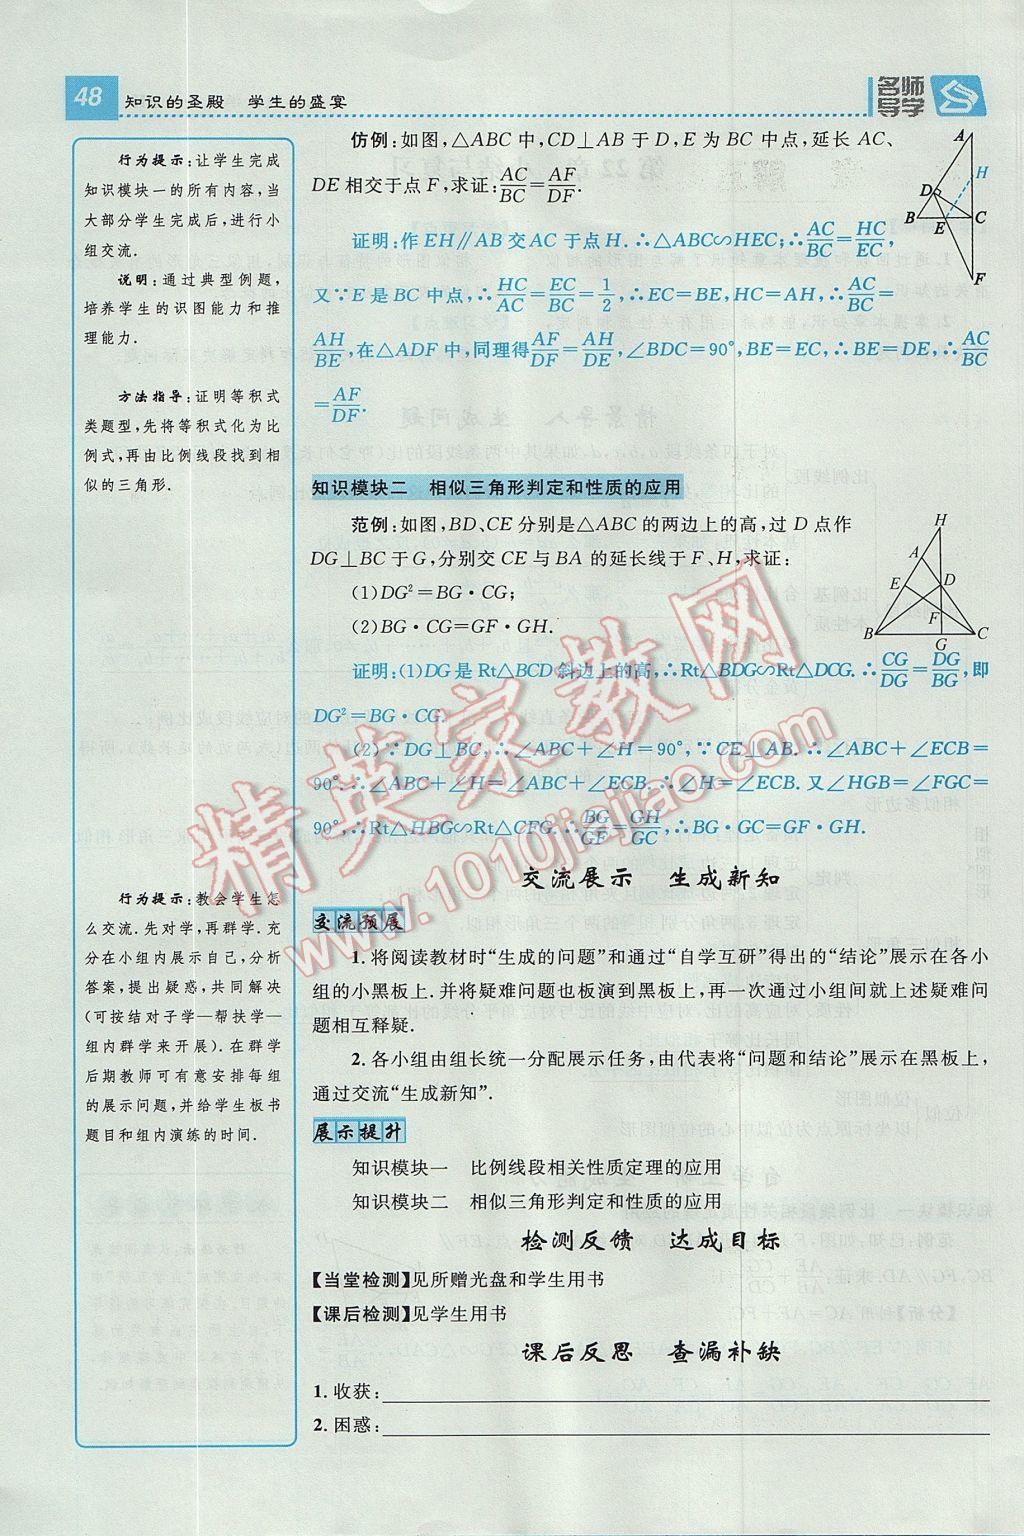 48 知识的圣殿 学生的盛宴
名师导学
行为提示:让学生完成
知识模块一的所有内容,当
大部分学生完成后,进行小
组交流.
说明:通过典型例题,
培养学生的识图能力和推
理能力.
方法指导:证明等积式
类题型,先将等积式化为比
例式,再由比例线段找到相
似的三角形.
行为提示:教会学生怎
么交流.先对学,再群学.充
分在小组内展示自己,分析
答案,提出疑惑,共同解决
(可按结对子学—帮扶学—
组内群学来开展).在群学
后期教师可有意安排每组
的展示问题,并给学生板书
题目和组内演练的时间.
仿例:如图,△ABC 中,CD⊥AB 于 D,E 为 BC 中点,延长 AC、
DE 相交于点 F,求证:AC/BC=AF/DF.
A
H
D
B
E
C
F
证明:作 EH∥AB 交 AC 于点 H.∴△ABC∽HEC;∴AC/BC=HC/EC,
又∵E 是 BC 中点,∴HC/AC=EC/BC=1/2,∴EC=BE,HC=AH,∴AC/BC=
AH/BE,在△ADF 中,同理得AF/DF=AH/DE,∠BDC=90°,BE=EC,∴BE=DE,∴AC/BC
=AF/DF.
知识模块二 相似三角形判定和性质的应用
范例:如图,BD、CE 分别是△ABC 的两边上的高,过 D 点作
DG⊥BC 于 G,分别交 CE 与 BA 的延长线于 F、H,求证:
(1)DG²=BG·CG;
(2)BG·CG=GF·GH.
H
A
E
D
F
B
G
C
证明:(1)DG 是 Rt△BCD 斜边上的高,∴Rt△BDG∽Rt△DCG.∴CG/DG=DG/BG,即
DG²=BG·CG.
(2)∵DG⊥BC,∴∠ABC+∠H=90°,∵CE⊥AB.∴∠ABC+∠ECB=
90°.∴∠ABC+∠H=∠ABC+∠ECB.∴∠H=∠ECB.又∠HGB=∠FGC=
90°,∴Rt△HBG∽Rt△CFG.∴BG/GF=GH/GC,∴BG·GC=GF·GH.
交流展示 生成新知
交流预展
1. 将阅读教材时“生成的问题”和通过“自学互研”得出的“结论”展示在各小
组的小黑板上.并将疑难问题也板演到黑板上,再一次通过小组间就上述疑难问
题相互释疑.
2. 各小组由组长统一分配展示任务,由代表将“问题和结论”展示在黑板上,
通过交流“生成新知”.
展示提升
知识模块一 比例线段相关性质定理的应用
知识模块二 相似三角形判定和性质的应用
检测反馈 达成目标
【当堂检测】见所赠光盘和学生用书
【课后检测】见学生用书
课后反思 查漏补缺
1. 收获:
2. 困惑:
精英家教网
www.1010jiajiao.com